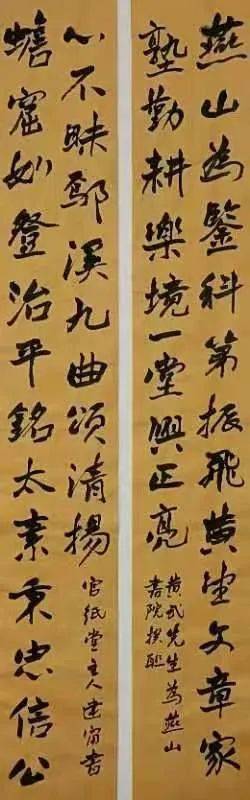 燕山為鑒科第振飛黃望文章家
塾勤耕樂境一堂興正亮
黃武先生為燕山
書院撰聯
蟾窟妙登治平銘太素秉忠信公
心不昧溪九曲頌清揚
官紙堂主人建甯書